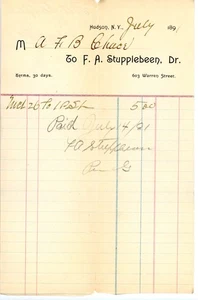 Hudson, N. Y., July 189
M A F B Chace
To F. A. Stupplebeen, Dr.
Terms, 30 days. 603 Warren Street.
Mch 26 To 1 5 00
Paid July 14/91
F A Stupplebeen
Per G